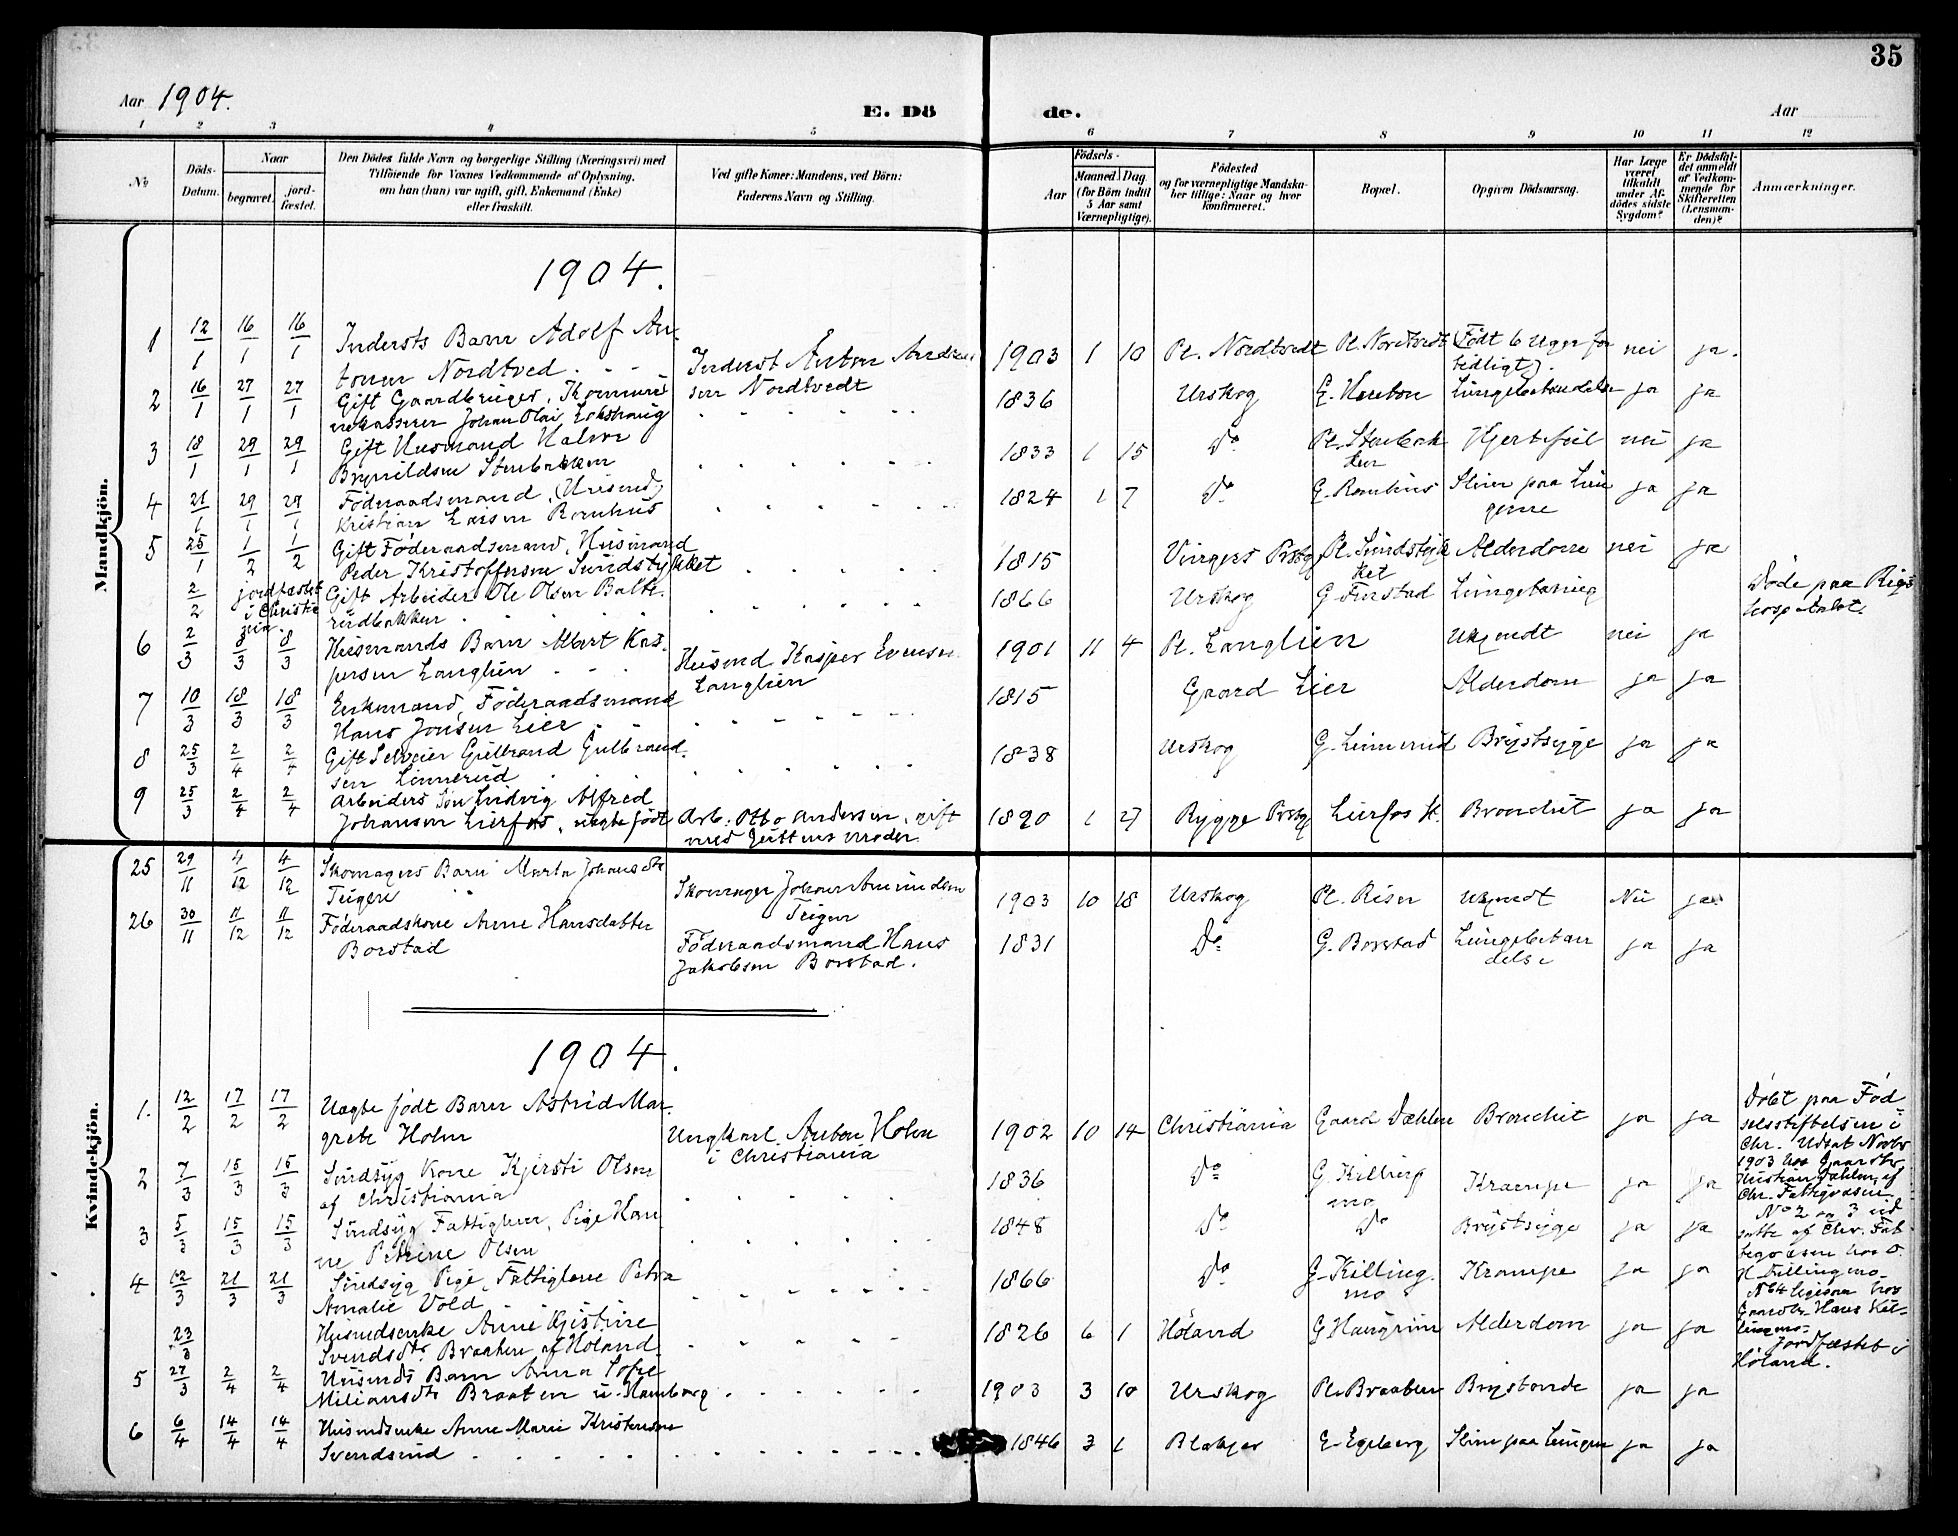 35
Aar 1904.
E. Dö de.
Aar
1 2 3 4 5 6 7 8 9 10 11 12
No
Döds-Datum.
Naar
begravet.
jord-fæstet.
Den Dödes fulde Navn og borgerlige Stilling (Næringsvei) med
Tilföiende for Voxnes Vedkommende af Oplysning,
om han (hun) var ugift, gift, Enkemand (Enke)
eller fraskilt.
Ved gifte Koner: Mandens, ved Börn:
Faderens Navn og Stilling.
Födsels-
Aar
Maaned. Dag.
(for Börn indtil
5 Aar samt
Værnepligtige).
Födested
og for værnepligtige Mandska-
ber tillige: Naar og hvor
konfirmeret.
Bopæl.
Opgiven Dödsaarsag.
Har Læge
været
tilkaldt
under Af-
dödes sidste
Sygdom?
Er Dödsfal-
det anmeldt
af Vedkom-
mende for
Skifteretten
(Lensman-
den)?
Anmærkninger.
Mandkjön.
1904.
1 12/1 16/1 16/1 Indersts Barn Adolf An-
tonsen Nordtved . . . Inderst Anton Andrea-
sen Nordtvedt 1903 1 10 Pl. Nordtvedt Pl. Nordtvedt (Født 6 Uger for
tidligt). nei ja.
2 16/1 27/1 27/1 Gift Gaardbruger, Kommu-
nekasserer Johan Olai 1836 Urskog G. Lungebetændelse ja ja
3 18/1 29/1 29/1 Gift Husmand Halvor
Brynildsen Stenbakken 1833 1 15 Do Pl. Stenbak-
ken Hjertefeil nei ja
4 21/1 29/1 29/1 Føderaadsmand,
Kristian Larsen Romhus 1824 1 7 Do G. Romhus Sliim paa Lun-
gerne ja ja
5 25/1 1/2 1/2 Gift Føderaadsmand, Husmand
Peder Kristoffersen Sundstykket 1815 Vingers Prstg Pl. Sundstyk-
ket Alderdom nei ja
2/2 jordfæstet
i Christia-
nia. Gift Arbeider Ole Olsen Balte-
rudbakken 1866 Urskog G. Funstad Døde paa Rigs-
hospitalet.
6 2/3 8/3 8/3 Husmands Barn Albert Kas-
persen Langlien Husmd Kasper Evensen
Langlien 1901 11 4 Pl. Langlien Ukjendt nei ja
7 10/3 18/3 18/3 Enkemand, Føderaadsmand
Hans Jonsen Lier 1815 Gaard Lier Alderdom ja ja
8 25/3 2/4 2/4 Gift Selveier Gulbrand Gulbrand-
sen Linnerud 1838 Urskog G. Linnerud Brystsyge ja ja
9 25/3 2/4 2/4 Arbeiders Søn Ludvig Alfred
Johansen Lierfos, uægte født Arb. Otto Andersen, gift
med Guttens moder. 1890 1 27 Rygge Prstg Lierfos St. Bronchit ja ja
Kvindekjön.
25 29/11 4/12 4/12 Skomagers Barn Marta Johansdtr
Teigen Skomager Johan Amundsen
Teigen 1903 10 18 Urskog Pl. Risen Ukjendt Nei ja
26 30/11 11/12 11/12 Føderaadskone Anne Hansdatter
Borstad Føderaadsmand Hans
Jakobsen Borstad. 1831 Do G. Borstad Lungebetæn-
delse ja ja
1904.
1. 12/2 17/2 17/2 Uægte født Barn Astrid Mar-
grete Holm Ungkarl Anton Holm
i Christiania 1902 10 14 Christiania Gaard Dæhlen Bronchit ja ja Døbt paa Fød-
selsstiftelsen i
Chr. Udsat Novbr
1903 hos Gaardbr.
Kristian Dæhlen af
Chr. Fattigvæsen.
2 7/3 15/3 15/3 Sindsyg Kone Kjersti Olsen
af Christiania 1836 Do G. Killing-
mo Krampe ja ja
3 5/3 15/3 15/3 Sindsyg Fattiglem, Pige Han-
ne Petrine Olsen 1848 Do Do Brystsyge ja ja No 2 og 3 ud-
satte af Chr. Fat-
tigvæsen hos O.
H. Killingmo.
4 12/3 21/3 21/3 Sindsyg Pige, Fattiglem Petra
Amalie Vold 1866 Do G. Killing-
mo Krampe ja ja No 4 ligesaa hos
Gaardbr. Hans Kil-
lingmo.
23/3 Husmdsenke Anne Kjistine
Svendsdtr Braaten af Høland 1826 6 1 Høland Alderdom ja ja Jordfæstet i
Høland.
5 27/3 2/4 2/4 Husmds Barn Anna Sofie
Miliansdtr Braaten u. Hamborg 1903 3 10 Urskog Pl. Braaten ja ja
6 6/4 14/4 14/4 Husmdsenke Anne Marie Kristensen
Svendsrud 1846 3 1 Blakjer E. Egeberg Sliim paa Lungen ja ja